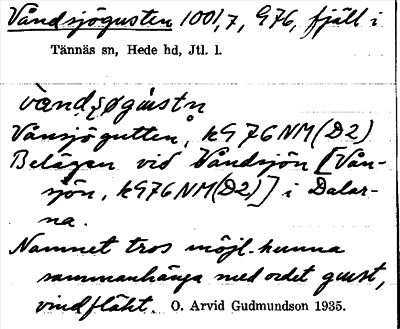 Våndsjögusten 1001,7, 976, fjäll i
Tännäs sn, Hede hd, Jtl. l.
vandsøgùstn
Vånsjögutten, k976NM(D2)
Belägen vid Våndsjön [Vån-
sjön, k976NM(D2)] i Dalar-
na.
Namnet tros möjl. kunna
sammanhänga med ordet gust,
vindfläkt. O. Arvid Gudmundson 1935.